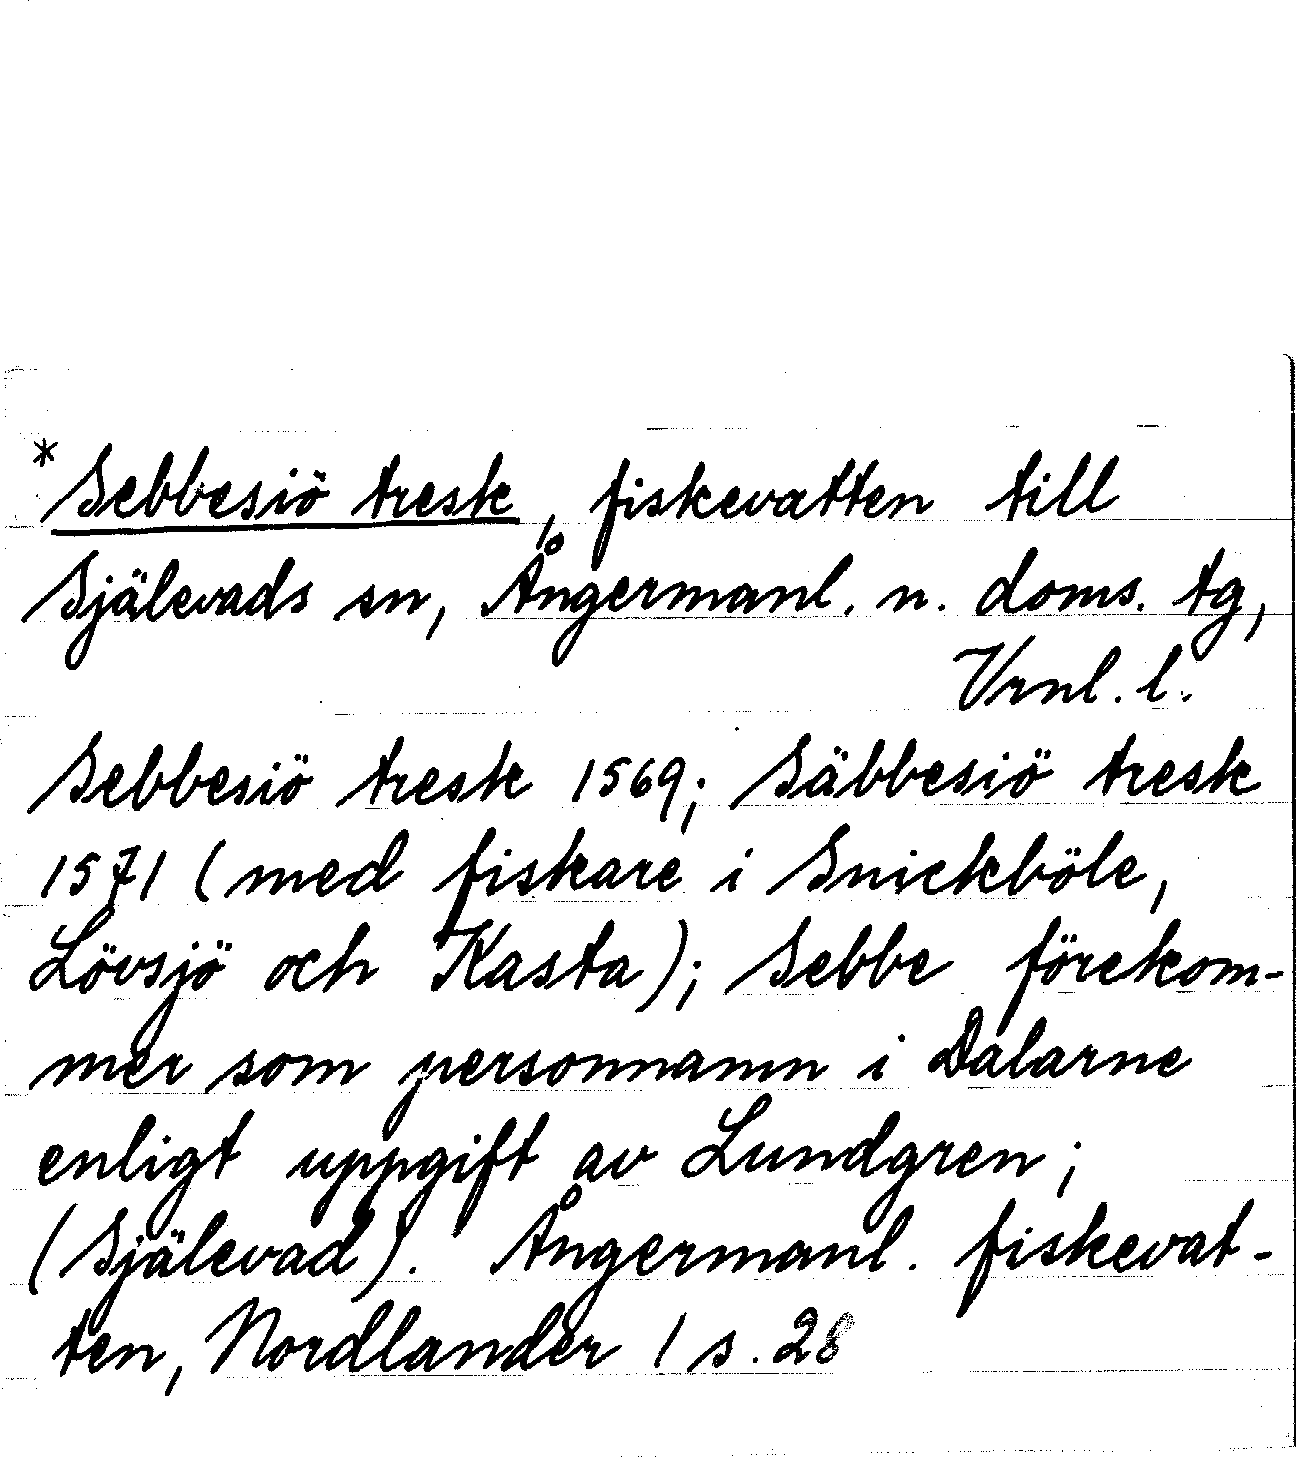 * Sebbesiö tresk, fiskevatten till
Själevads sn, Ångermanl. n. doms. tg,
Vrnl. l.
Sebbesiö tresk 1569; Säbbesiö tresk
1571 (med fiskare i Snickböle,
Lövsjö och Kasta); Sebbe förekom-
mer som personnamn i Dalarne
enligt uppgift av Lundgren;
(Själevad). Ångermanl. fiskevat-
ten, Nordlander 1 s. 28